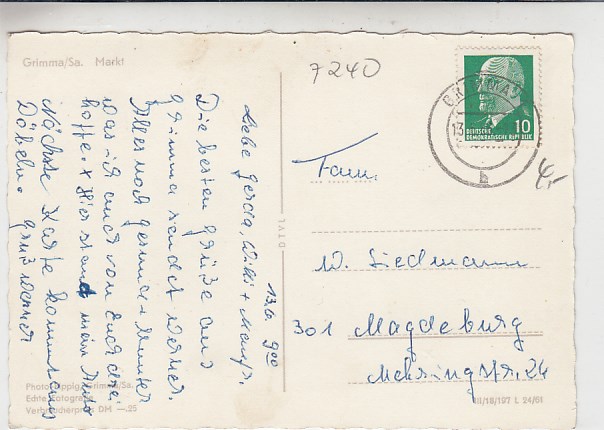 Grimma/Sa. Markt
13.6. 900
Liebe Gerda, Willi +
Die besten Grüße aus
Grimma sendet Werner.
Alles noch gesund + Munter
was ich auch von Euch drei
hoffe. + Hier stand mein Auto
Nächste Karte kommt aus
Döbeln. Gruß Werner
Photo Grimma/Sa.
Echte Fotografie
Verbraucherpreis DM —.25
DTVL
7240
DEUTSCHE
DEMOKRATISCHE REPUBLIK
10
13
b
4,-
Fam.
W. Siedmann
301 Magdeburg
Mehringstr. 24
III/18/197 L 24/61